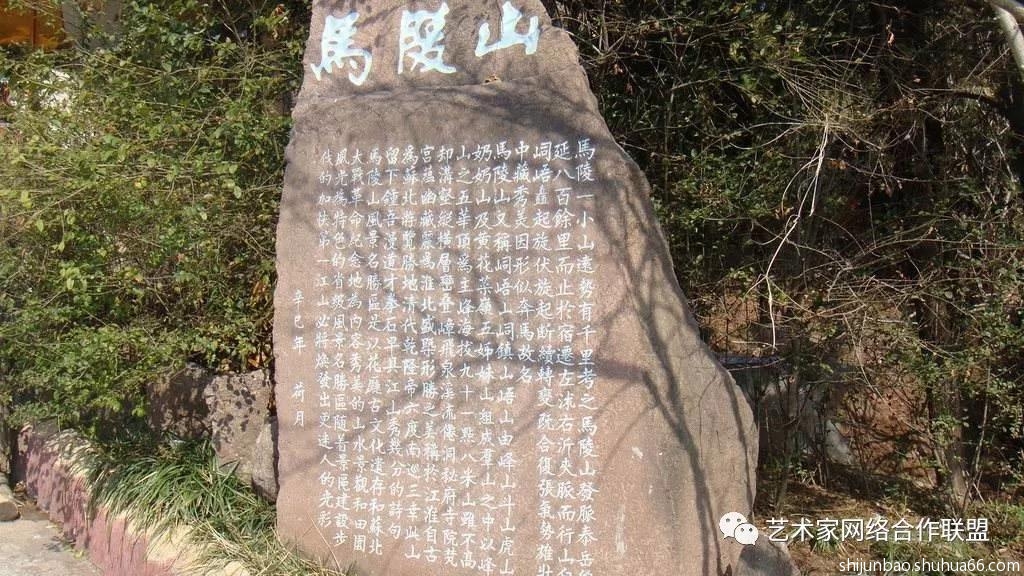 馬陵山
馬陵一小山遠勢有千里考之馬陵山發脈泰岳
延八百餘里而止於宿遷左沭右沂夾脈而行山
峒峿矗起旋伏旋起斷續轉變既合復張氣勢雄壯
中藏秀美因形似奔馬故名
馬陵山又稱峒峿山峒鎮山峿山由峰山斗山虎山
奶奶山及黃花菜嶺五姊妹山組成羣山之中以峰
山之五華頂為主峰海拔九十一點八米山雖不高
却溝壑縱橫層巒叠嶂飛泉溪流倦洞秘府寺院梵
宮蘊幽藏麗為淮北盛槩形勝之美稱於江淮自古
為蘇北將覽勝地清代乾隆帝六度南巡三幸此山
留下鐘吾漫道才拳石早具江山秀幾分的詩句
馬陵山風景名勝區是以花廳古文化遺存和蘇北
大戰革命紀念地為內容秀美的山水景觀和田園
風光為特色的省級風景名勝區隨着景區建設步
伐的加快第一江山必將煥發出更迷人的光彩
辛巳年 荷月
艺术家网络合作联盟
shijunbao.shuhua66.com